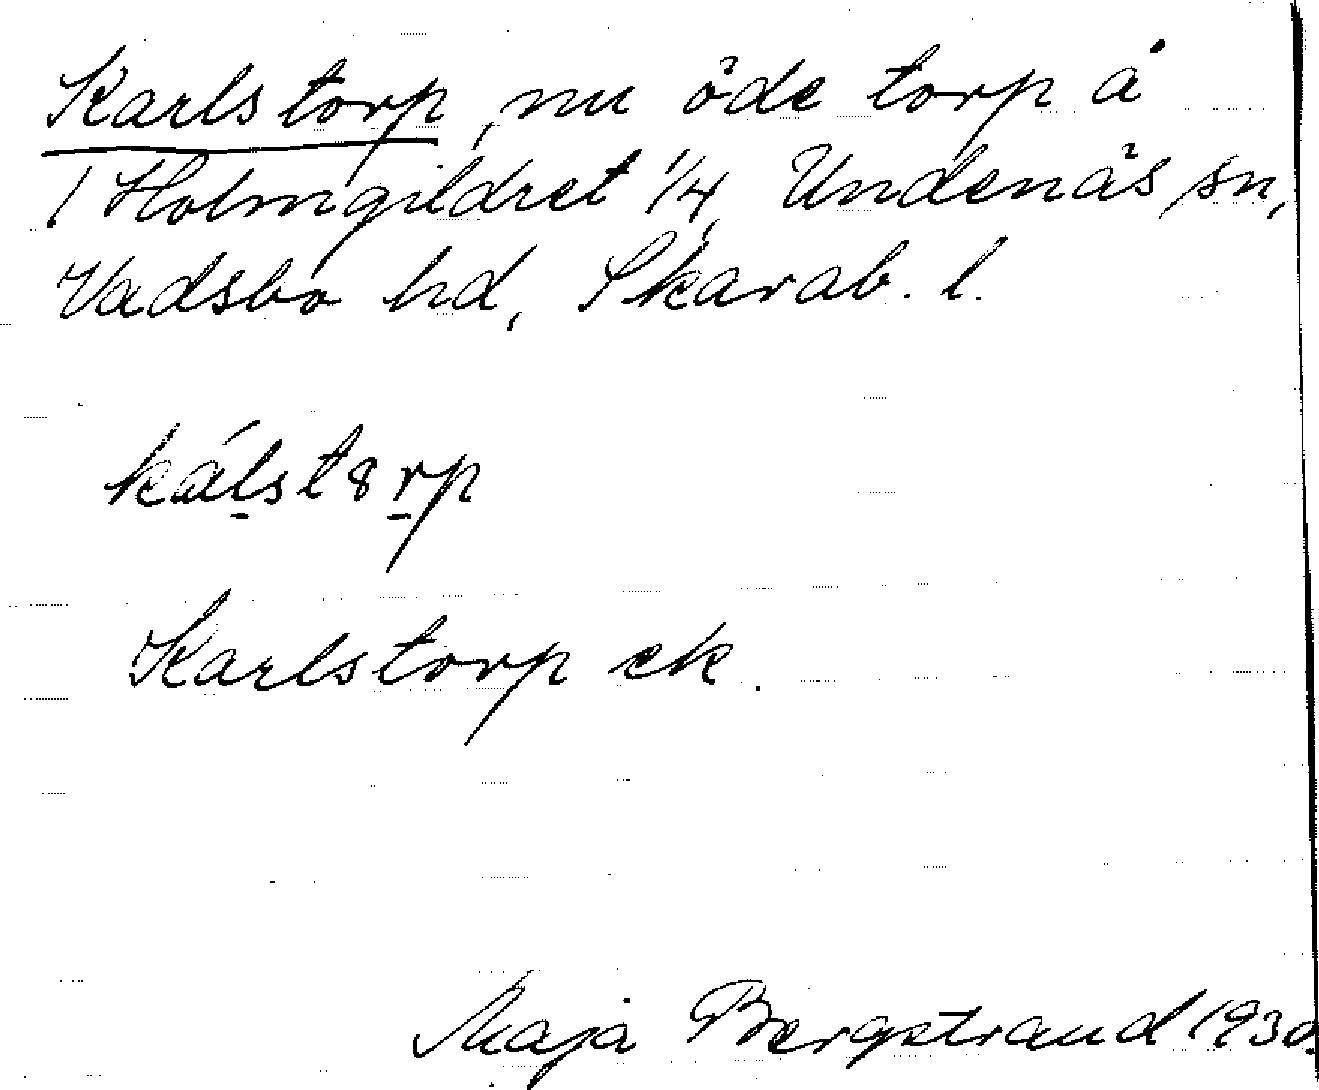 Karlstorp, nu öde torp å
/ Holmgildret 1/4, Undenäs sn,
Vadsbo hd, Skarab. l.
kálst8rp
Karlstorp ek.
Maja Bergstrand 1930.